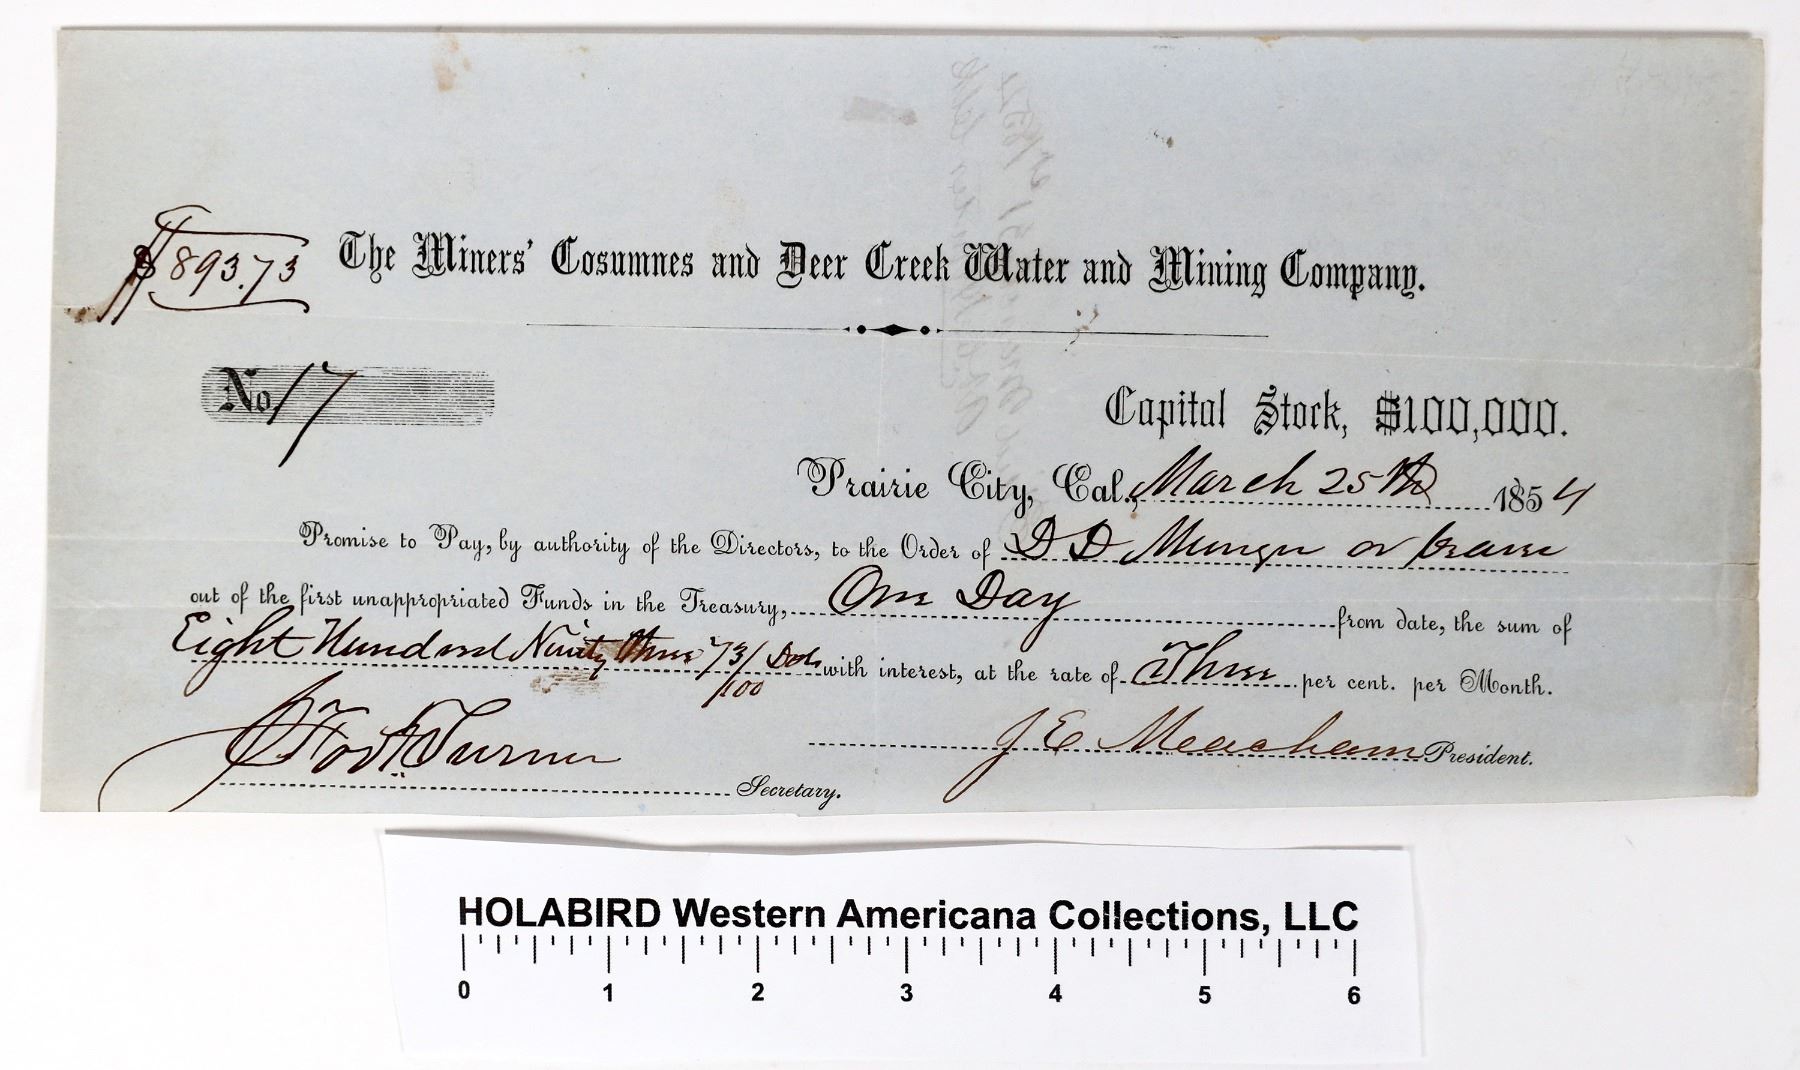 $893.73
The Miners' Cosumnes and Deer Creek Water and Mining Company.
No 17
Capital Stock, $100,000.
Prairie City, Cal., March 25th 1854
Promise to Pay, by authority of the Directors, to the Order of D D Munger or bearer
out of the first unappropriated Funds in the Treasury, One Day from date, the sum of
Eight Hundred Ninety Three 73/100 Dols with interest, at the rate of Three per cent. per Month.
J E Meacham President.
Turner Secretary.
HOLABIRD Western Americana Collections, LLC
0 1 2 3 4 5 6